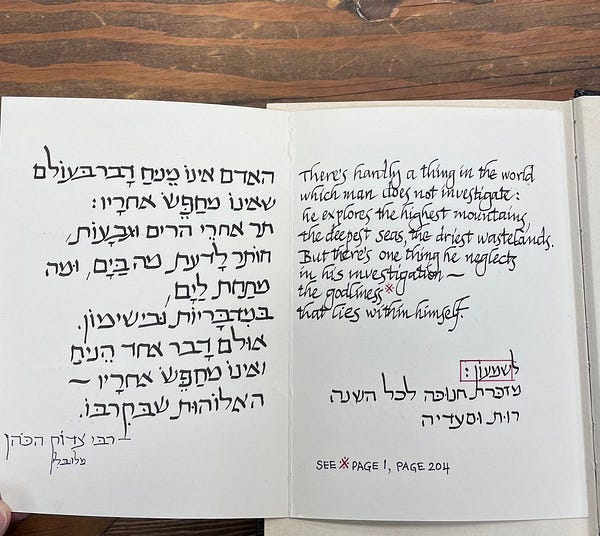 האדם אינו מֵניחַ דָבר בּעולם
שאינו מחַפֵּשׂ אחרָיו:
תר אחרֵי הרים וּגבָעות,
חותר לָדעת מה בַּיָם, ומה
מתַחת לַיָם,
בּמִדבָּריות וּבישימון.
אולם דָבר אחד הֵניחַ
ואינו מחַפֵּשׂ אחרָיו ~
האלוהוּת שבּקִרבּו.
רבי צדוק הכהן
מלובלין
There's hardly a thing in the world
which man does not investigate:
he explores the highest mountains,
the deepest seas, the driest wastelands.
But there's one thing he neglects
in his investigation ~
the godliness※
that lies within himself.
לשמעון:
מזכרת חנוכה לכל השנה
רות וסעדיה
SEE ※ PAGE 1, PAGE 204